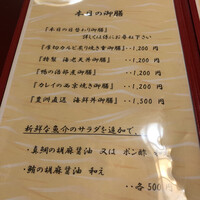 本日の御膳
『本日の日替わり御膳』
詳しくは係にお尋ね下さい
『厚切カルビ炙り焼き重御膳』・・1,200円
『特製 海老天丼御膳』・・1,200円
『鴨の治部煮御膳』・・1,200円
『カレイの西京焼き御膳』・・1,200円
『豊洲直送 海鮮丼御膳』・・1,500円
新鮮な魚介のサラダを追加で、
・真鯛の胡麻醤油 又は ポン酢
・鮪の胡麻醤油 和え
・・各500円